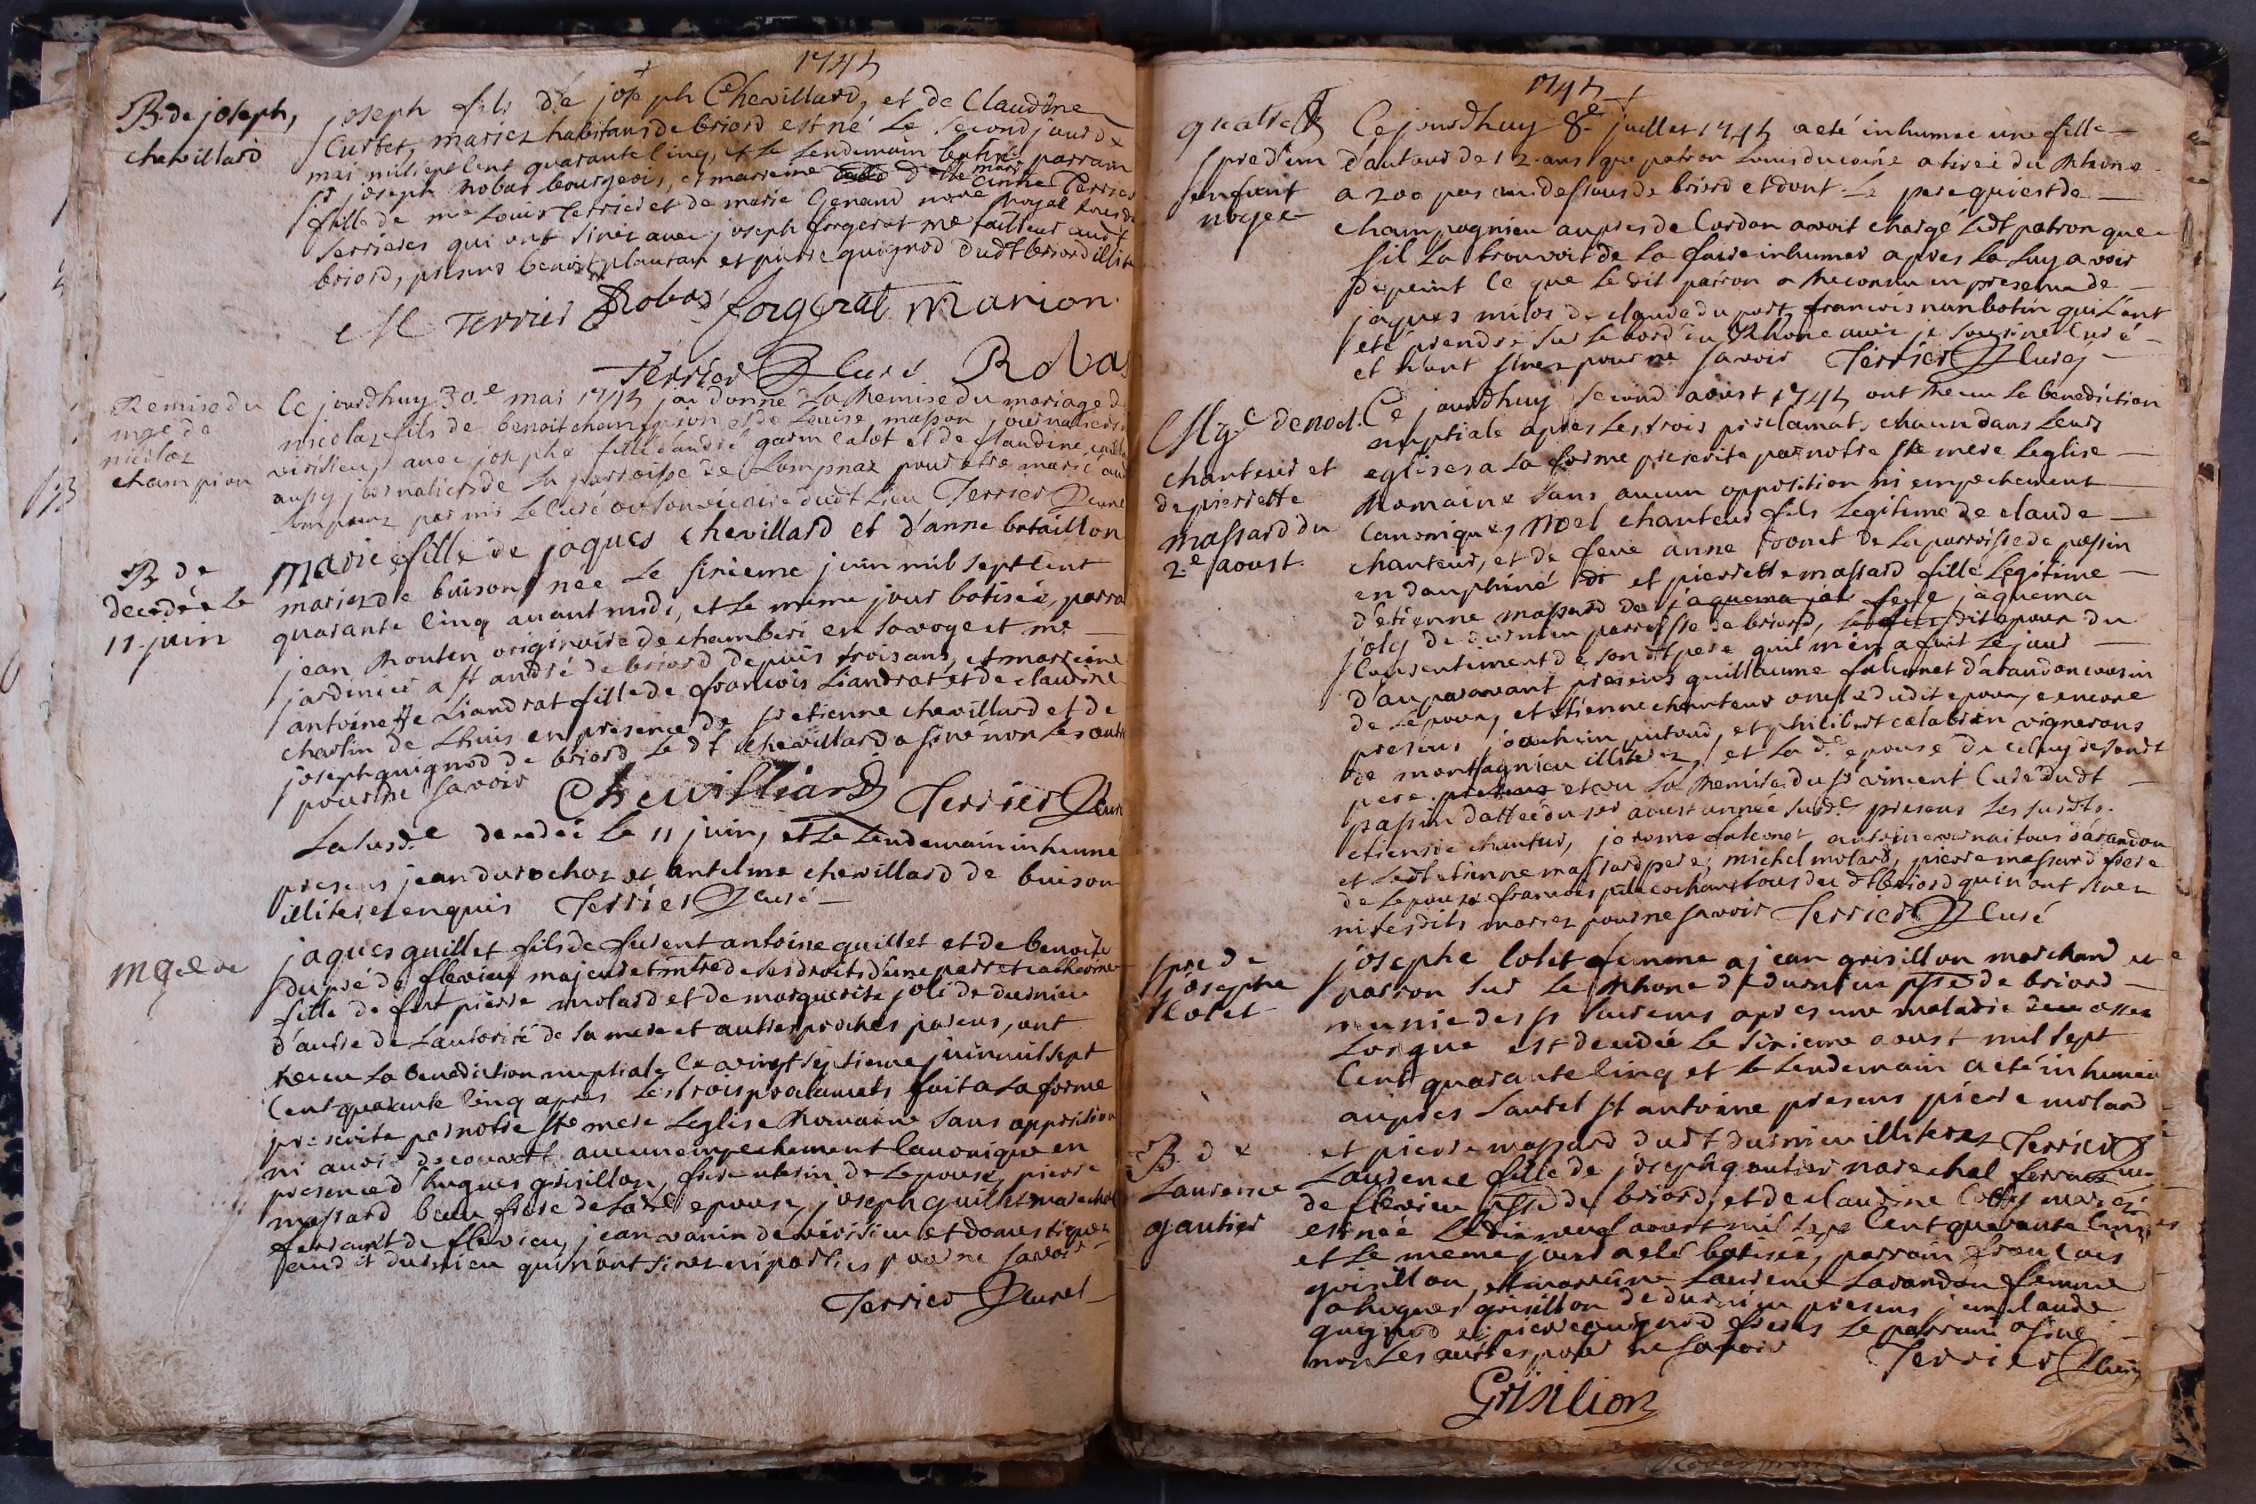 1745
B. de joseph,
chevillard
joseph fils de joseph Chevillard, et de Claudine
Curtet, mariez habitans de briord est né Le second jour de
mai mil sept Cent quarante Cinq, et Le Lendemain batisé parrain
sr joseph Robat bourgeois, et marreine dlle marie anne Terrier
fille de me Louis Terrier et de marie Genand nore Royal
Serrieres qui ont sinez avec joseph forgerat me tailleur aud
briord, presens benoist plantan et pierre quignod dudt briord
M Terrier Robat forgerat Marion
Terrier Curé Robat
Remise du
mge de
nicolas
champion
Ce jourdhuy 30.e mai 1745 jai donné La Remise du mariage de
nicolaz fils de benoit champion et de Louise masson journaliers
virisieu, avec josephe fille dandré garin Calot et de Claudine
aussy journaliers de La parroisse de Lompnaz pour etre marié aud
Lompnaz par mr Le Curé ou son vicaire dudt Lieu Terrier Curé
B de
decedée Le
11 juin
Marie fille de jaques chevillard et d'anne bataillon
mariez de buison, née Le sixieme juin mil sept Cent
quarante Cinq avant midi, et Le méme jour batisée, parra
jean Routen originaire de chamberi en Savoye et me
jardinier a st andré de briord depuis trois ans, et marreine
antoinette Liandrat fille de francois Liandrat et de claudine
charlin de Lhuis en presence de sr etienne chevillard et de
joseph quignod de briord Le dt chevillard a siné non Les autre
pour ne savoir
Chevilliard Terrier Curé
La susd.e decedée Le 11 juin, et Le Lendemain inhumé
presens jean durochat et antelme chevillard de buison
illiterez enquis Terrier Curé
mge de
jaques guillet fils de furent antoine guillet et de benoite
dupré de flevieu majeur et mtre de ses droits d'une part et catherine
fille de fut pierre molard et de marguerite joli de dornieu
d'autre de Lautorité de sa mere et autres proches parens, ont
Receu La benediction nuptiale Ce vingt septieme juin mil sept
Cent quarante Cinq apres Les trois proclamats fait a La forme
prescrite par notre ste mere Leglise Romaine sans opposition
ni avoir decouvert aucun empechement Canonique en
presence d'hugues grisillon, frere uterin de Lepouse, pierre
massard beau frere de Lade epouse, joseph guillet marechal
ferrant de flevieu, jean varin de virisieu et domestique
aud dt durnieu qui n'ont sinez ni parties pour ne savoir
Terrier Curé
1745
spre d'un
enfant
noyee
Ce jourdhuy 8.e juillet 1745 a eté inhumee une fille
d'autour de 12. ans que patron Louis ducoin a tiree du Rhone
a 200 pas au dessous de briord et dont Le pere qui est de
champagnieu aupres de Cordon avoit chargé Ledt patron que
sil La trouvoit de La faire inhumer apres La Luy avoir
depeint Ce que Le dit patron a Reconnu en presence de
jaques milos de claude duport, francois nambotin qui L'ont
eté prendre sur Le bord du Rhone avec je sousiné Curé
et n'ont sinez pour ne savoir Terrier Curé
Mge de noel
chanteur et
de pierrette
massard du
2.e aoust
Ce jourdhuy second aoust 1745 ont Receu La benediction
nuptiale apres Les trois proclamats, chacun dans Leurs
eglises a La forme prescrite par notre ste mere Leglise
Romaine sans aucun opposition ni empechement
Canoniques, Noel chanteur fils Legitime de claude
chanteur, et de feue anne de La parroisse de passin
en dauphiné et pierrette massard fille Legitime
d'etienne massard de feue jaquema
joly de durnieu parroisse de briord, Ledit epoux du
Consentiment de son dt pere quil m'en a fait Le jour
d'auparavant presens guillaume falconet d'arandon cousin
de Lepoux, et etienne chanteur oncle dudit epoux, encore
presens joachim putoud, et philibert calabren vignerons
de montagnieu illiterez, et La de epouse de Celuy de sondt
pere et vu La Remise du sr vincent Curé dudt
passin dattée du 1er aoust année susd.e presens Les susdts.
etienne chanteur, jerome falconet, antoine tous d'arandon
et Ledt etienne massard pere, michel molard, pierre massard frere
de Lepouse francois tous du dt briord qui n'ont sinez
ni Lesdits mariez pour ne savoir Terrier Curé
spre de
josephe
Colet
josephe Colet femme a jean grisillon marchand et
patron sur Le Rhone de durnieu psse de briord
munie des sts sacremens apres une maladie assez
Longue est decedée Le sixieme aoust mil sept
Cent quarante Cinq et Le Lendemain a eté inhumée
aupres Lautel st antoine presens pierre molard
et pierre massard dudt durnieu illiterez Terrier Curé
B. de
Laurence
gautier
Laurence fille de joseph gautier marechal ferrant
de flevieu psse de briord, et de claudine mariez
est née Le dix neuf aoust mil sept Cent quarante Cinq
et Le meme jour a eté batisée, parrain francois
grisillon, et marreine Laurence Lavandon femme
a hugues grisillon de durnieu presens jean claude
quignod et pierre quignod freres Le parrain a siné
non Les autres pour ne savoir Terrier Curé
Grisilion